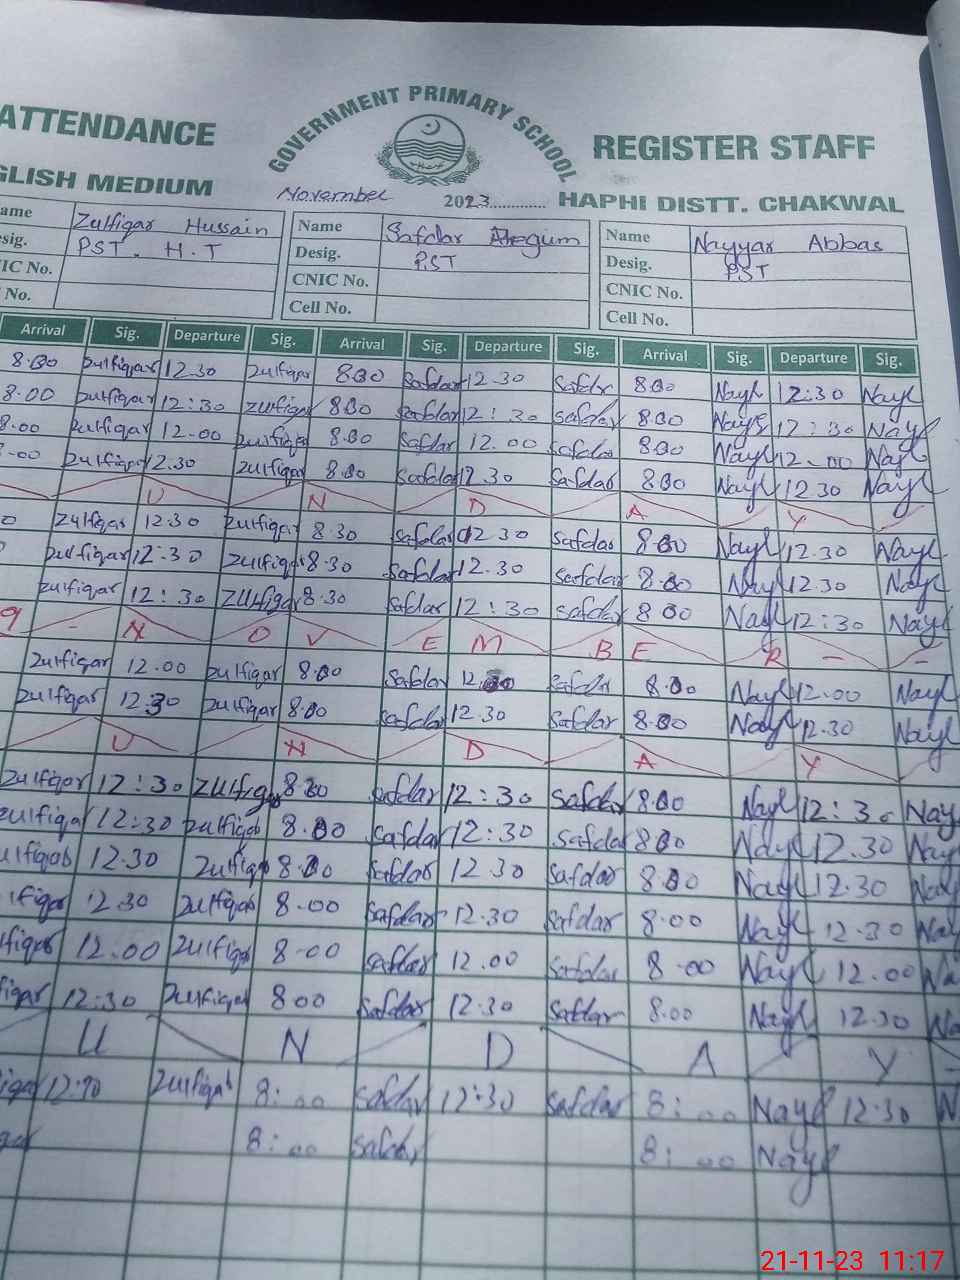 GOVERNMENT PRIMARY SCHOOL
ATTENDANCE REGISTER STAFF
GLISH MEDIUM November 2023............ HAPHI DISTT. CHAKWAL
ame Zulfiqar Hussain Name Safdar Name Nayyar Abbas
sig. PST. H.T Desig. PST Desig. PST
IC No. CNIC No. CNIC No.
No. Cell No. Cell No.
Arrival Sig. Departure Sig. Arrival Sig. Departure Sig. Arrival Sig. Departure Sig.
8.00 Zulfiqar 12.30 Zulfiqar 8.00 Safdar 12.30 Safdar 8.00 Nayl 12:30 Nayl
8.00 Zulfiqar 12:30 Zulfiqar 8.00 Safdar 12:30 Safdar 8.00 Nayl 12:30 Nayl
8.00 Zulfiqar 12.00 Zulfiqar 8.00 Safdar 12.00 Safdar 8.00 Nayl 12.00 Nayl
.00 Zulfiqar 12.30 Zulfiqar 8.00 Safdar 12.30 Safdar 8.00 Nayl 12.30 Nayl
U N D A Y
0 Zulfiqar 12:30 Zulfiqar 8.30 Safdar 12.30 Safdar 8.00 Nayl 12.30 Nayl
Zulfiqar 12:30 Zulfiqar 8.30 Safdar 12.30 Safdar 8.00 Nayl 12.30 Nayl
Zulfiqar 12:30 Zulfiqar 8.30 Safdar 12:30 Safdar 8.00 Nayl 12:30 Nayl
9 - N O V E M B E R - -
Zulfiqar 12.00 Zulfiqar 8.00 Safdar Safdar 8.00 Nayl 12.00 Nayl
Zulfiqar 12.30 Zulfiqar 8.00 Safdar 12.30 Safdar 8.00 Nayl 12.30 Nayl
U N D A Y
Zulfiqar 12:30 Zulfiqar 8.00 Safdar 12:30 Safdar 8.00 Nayl 12:30 Nay
Zulfiqar 12:30 Zulfiqar 8.00 Safdar 12:30 Safdar 8.00 Nayl 12.30 Nay
ulfiqar 12.30 Zulfiqar 8.00 Safdar 12.30 Safdar 8.00 Nayl 12.30 Nay
lfiqar 12.30 Zulfiqar 8.00 Safdar 12.30 Safdar 8.00 Nayl 12.30 Nay
lfiqar 12.00 Zulfiqar 8.00 Safdar 12.00 Safdar 8.00 Nayl 12.00 Na
fiqar 12:30 Zulfiqar 8.00 Safdar 12.30 Safdar 8.00 Nayl 12.30 Na
U N D A Y
iqar Zulfiqar 8:00 Safdar 12:30 Safdar 8:00 Nayl 12:30 N
qar 8:00 Safdar 8:00 Nayl
21-11-23 11:17